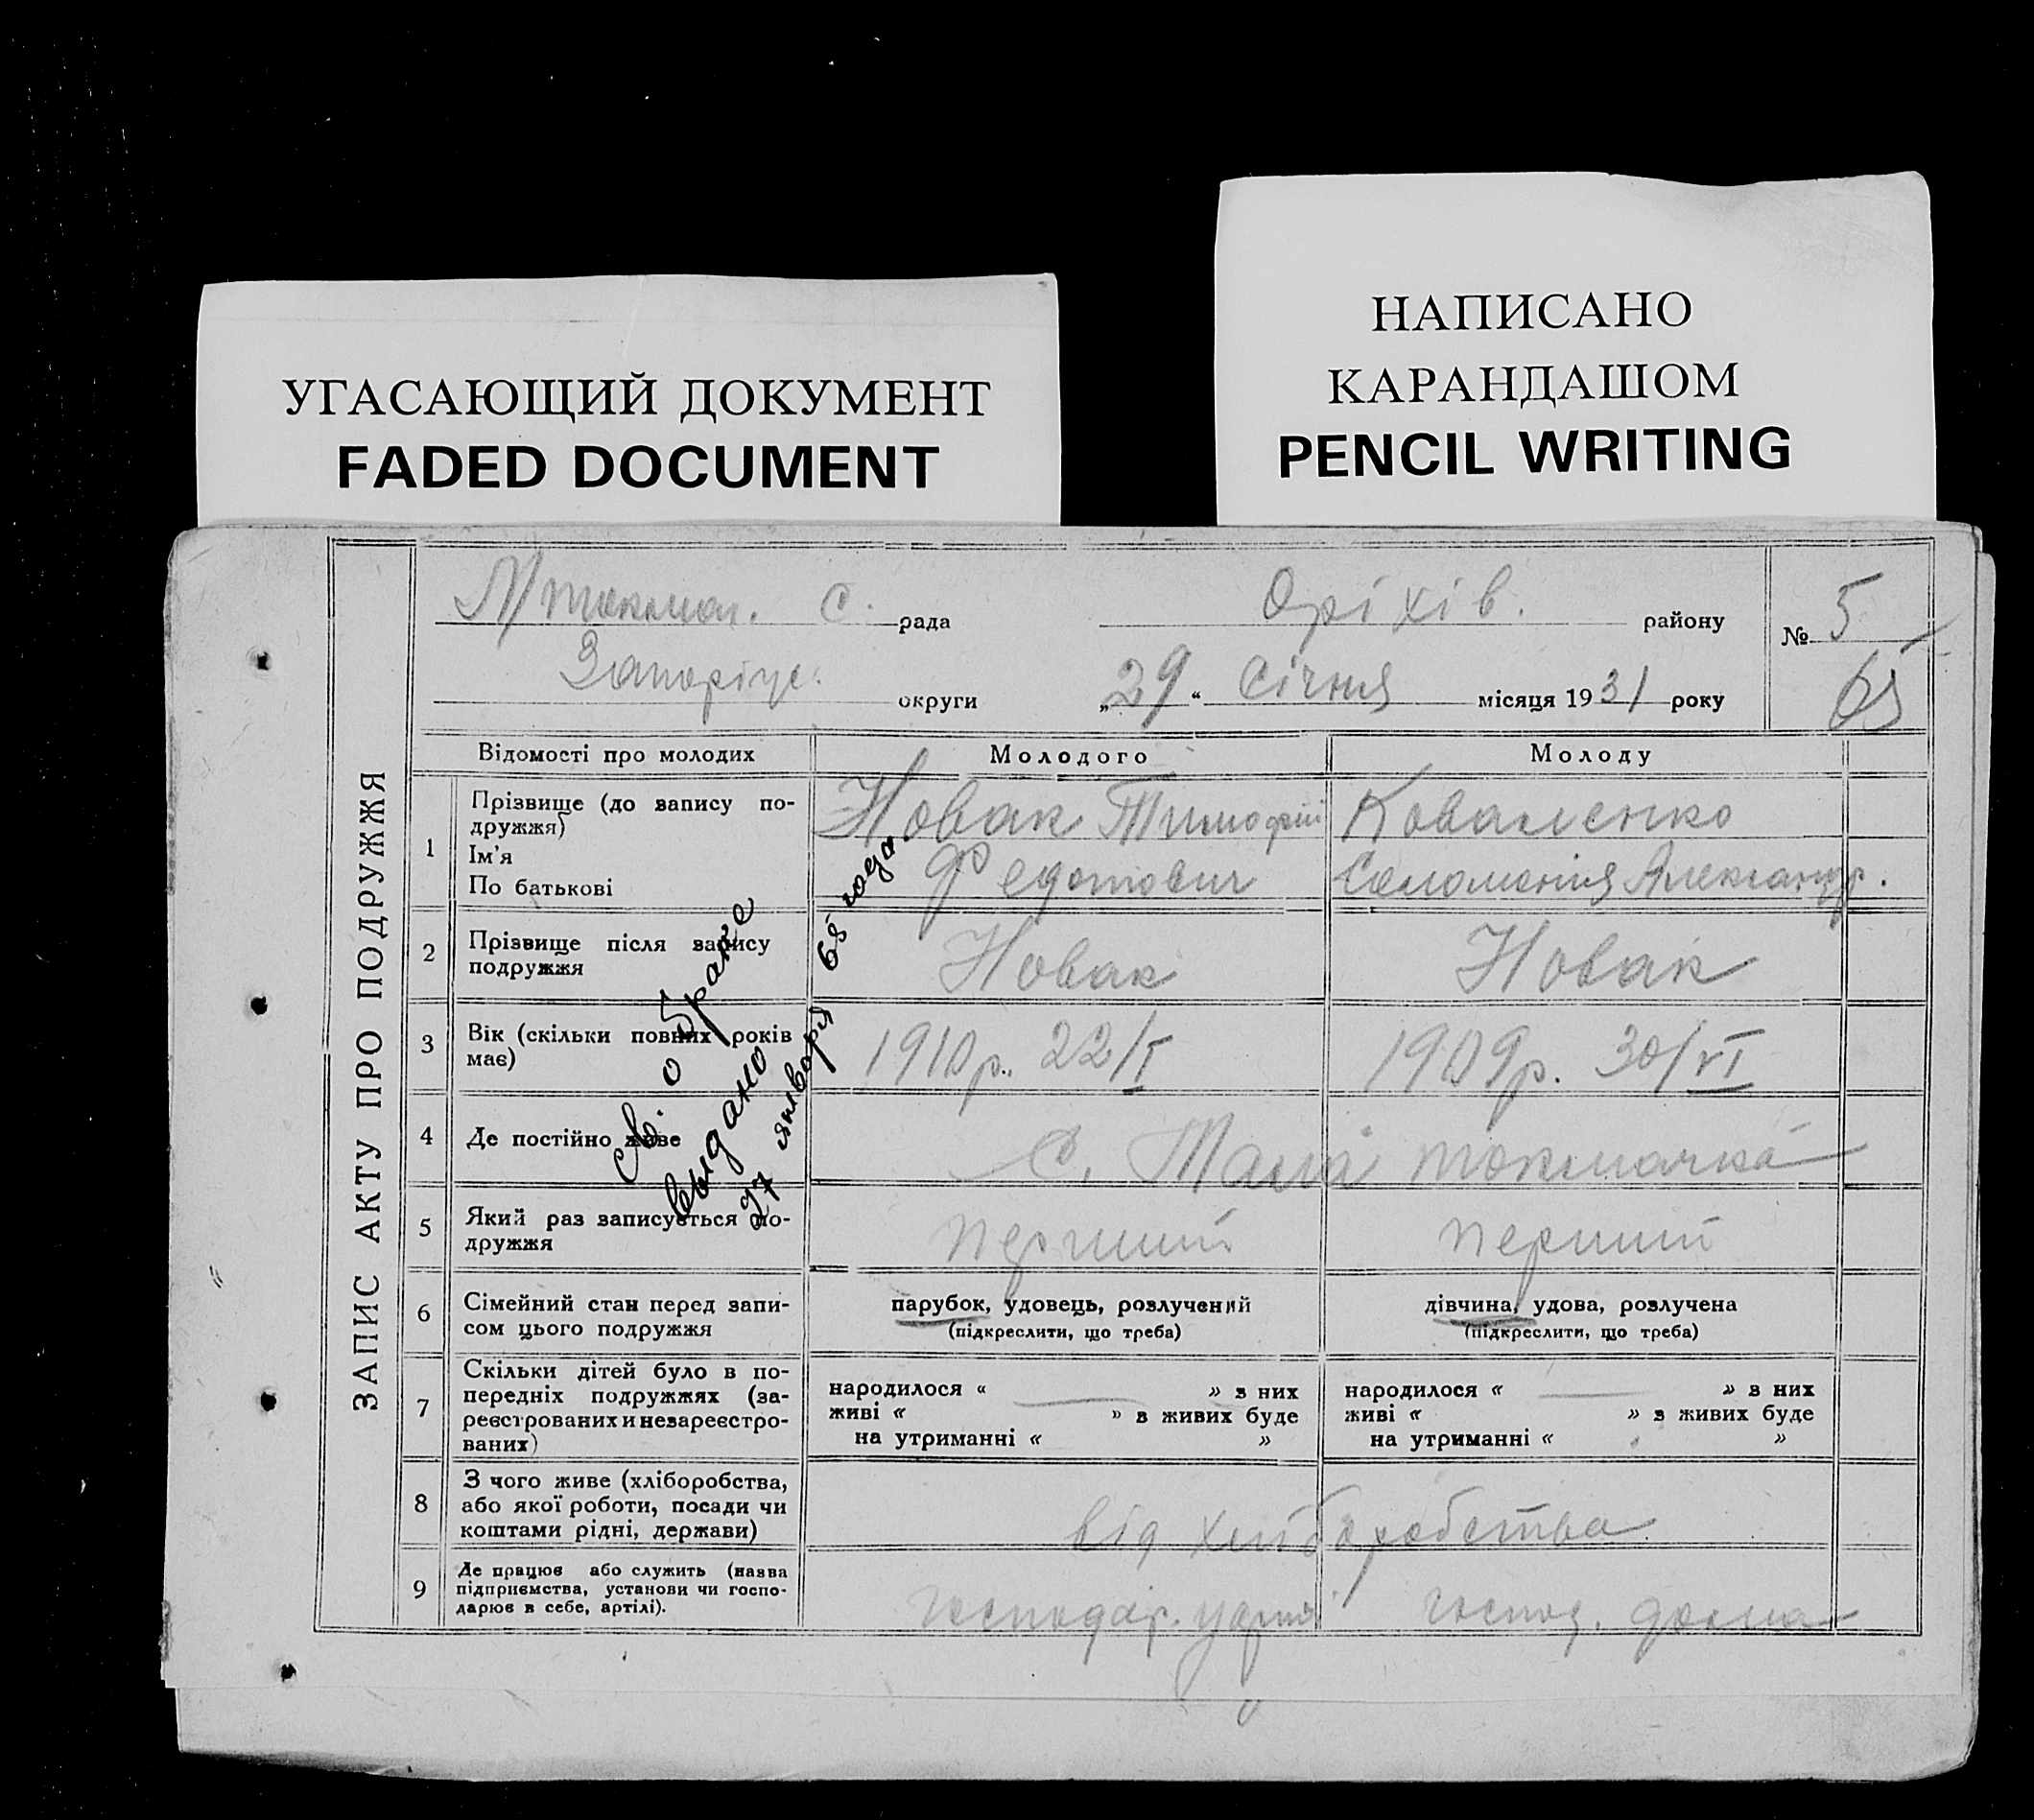 УГАСАЮЩИЙ ДОКУМЕНТ
FADED DOCUMENT
НАПИСАНО
КАРАНДАШОМ
PENCIL WRITING
ЗАПИС АКТУ ПРО ПОДРУЖЖЯ
Мтокмац. с. рада Оріхів. району № 5
Запоріж. округи „29“ Січня місяця 1931 року 65
Відомості про молодих Молодого Молоду
1 Прізвище (до запису по-
дружжя)
Ім'я
По батькові
Новак Тимофій
Федотович
Коваленко
Соломонія Александр.
2 Прізвище після запису
подружжя
Новак Новак
3 Вік (скільки повних років
має)
1910р. 22/I 1909р. 30/VI
4 Де постійно живе С. Мала токмачка
5 Який раз записується по-
дружжя
перший перший
6 Сімейний стан перед запи-
сом цього подружжя
парубок, удовець, розлучений
(підкреслити, що треба)
дівчина, удова, розлучена
(підкреслити, що треба)
7 Скільки дітей було в по-
передніх подружжях (за-
реєстрованих и незареєстро-
ваних)
народилося « » з них
живі « » в живих буде
на утриманні « »
народилося « » з них
живі « » з живих буде
на утриманні « »
8 З чого живе (хліборобства,
або якої роботи, посади чи
коштами рідні, держави)
від хліборобства
9 Де працює або служить (назва
підприємства, установи чи госпо-
дарює в себе, артілі).
господар. господ. дома
Св. о браке
выдано
27 января 68 года